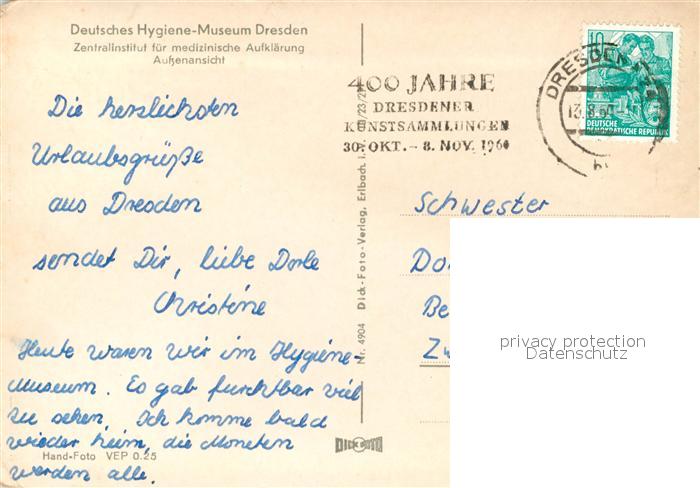 Deutsches Hygiene-Museum Dresden
Zentralinstitut für medizinische Aufklärung
Außenansicht
Die herzlichsten
Urlaubsgrüße
aus Dresden
sendet Dir, liebe Dorle
Christine
Heute waren wir im Hygiene-
Museum. Es gab furchtbar viel
zu sehen. Ich komme bald
wieder heim, die Moneten
werden alle.
Hand-Foto VEP 0.25
Nr. 4904 Dick-Foto-Verlag, Erlbach i.
DICK FOTO
400 JAHRE
DRESDENER
KUNSTSAMMLUNGEN
30. OKT. - 8. NOV. 1960
DRESDEN
13.8.60
10
DEUTSCHE
DEMOKRATISCHE REPUBLIK
Schwester
Do
Be
Zw
privacy protection
Datenschutz